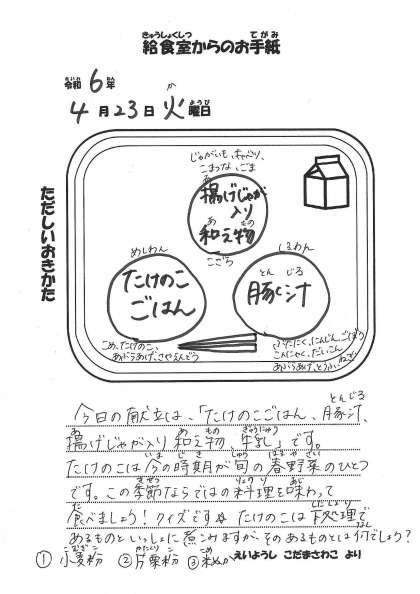 きゅうしょくしつ てがみ
給食室からのお手紙
れいわ ねん
令和6年
か ようび
4月23日火曜日
ただしいおきかた
じゃがいも、キャベツ、
こまつな、ごま
あ
揚げじゃが
入り
あ もの
和え物
こざら
めしわん
たけのこ
ごはん
しるわん
とん じる
豚汁
こめ、たけのこ、
あぶらあげ、さやえんどう
ぶたにく、にんじん、ごぼう
こんにゃく、だいこん、
ねぎ
あぶらあげ、とうふ
とんじる
今日の献立は、「たけのこごはん、豚汁、
あ い あ もの ぎゅうにゅう
揚げじゃが入り和え物、牛乳」です。
いま じき しゅん はるやさい
たけのこは今の時期が旬の春野菜のひとつ
きせつ りょうり あじ
です。この季節ならではの料理を味わって
た したしょり
食べましょう！クイズです。たけのこは下処理で
に なん
あるものといっしょに煮こみますが、そのあるものとは何でしょう？
こむぎこ かたくりこ こめ
①小麦粉 ②片栗粉 ③米ぬか えいようし こだまさわこ より